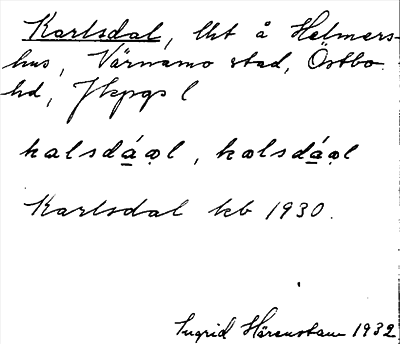 Karlsdal, lht å Helmers-
hus, Värnamo stad, Östbo
hd, Jkpgs l
kalsdáql, kalsdáql
Karlsdal kb 1930.
Ingrid Härenstam 1932